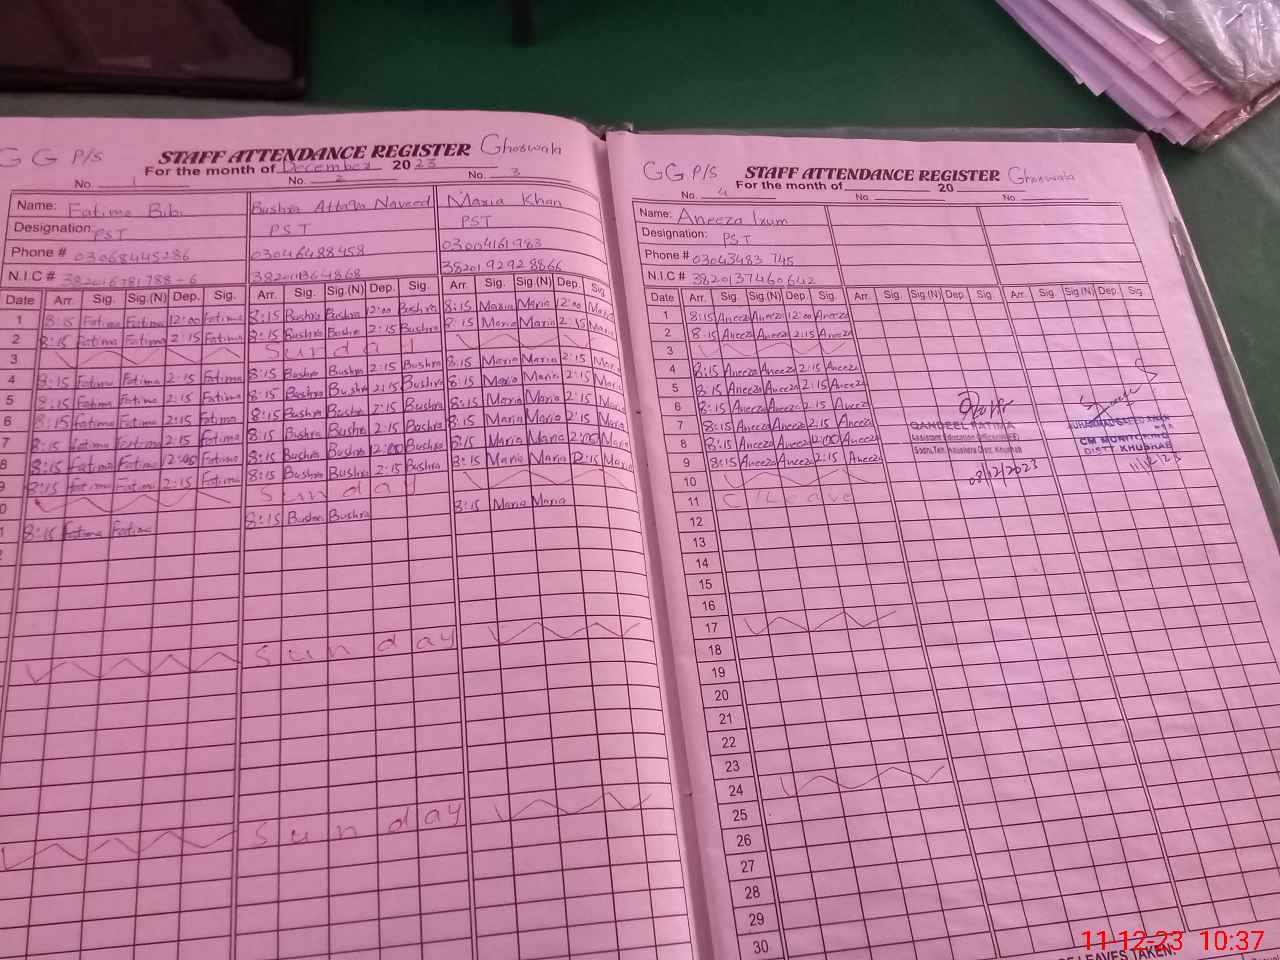 GG P/S STAFF ATTENDANCE REGISTER Ghoswala
For the month of December 2023
No. 1 No. 2 No. 3
Name: Fatima Bibi Bushra Attaqa Naveed Maria Khan
Designation: PST PST PST
Phone # 03068445286 03046488458 03004161983
N.I.C #
Date Arr. Sig. Sig.(N) Dep. Sig. Arr. Sig. Sig.(N) Dep. Sig. Arr. Sig. Sig.(N) Dep. Sig
1 8:15 Fatima Fatima 12:00 Fatima 8:15 Bushra Bushra 12:00 Bushra 8:15 Maria Maria 12:00 Maria
2 8:15 Fatima Fatima 2:15 Fatima 8:15 Bushra Bushra 2:15 Bushra 8:15 Maria Maria 2:15 Maria
3 Sunday
4 8:15 Fatima Fatima 2:15 Fatima 8:15 Bushra Bushra 2:15 Bushra 8:15 Maria Maria 2:15 Maria
5 8:15 Fatima Fatima 2:15 Fatima 8:15 Bushra Bushra 2:15 Bushra 8:15 Maria Maria 2:15 Maria
6 8:15 Fatima Fatima 2:15 Fatima 8:15 Bushra Bushra 2:15 Bushra 8:15 Maria Maria 2:15 Maria
7 8:15 Fatima Fatima 2:15 Fatima 8:15 Bushra Bushra 2:15 Bushra 8:15 Maria Maria 2:15 Maria
8 8:15 Fatima Fatima Fatima 8:15 Bushra Bushra 2:00 Bushra 8:15 Maria Maria 2:00 Maria
9 8:15 Fatima Fatima 2:15 Fatima 8:15 Bushra Bushra 2:15 Bushra 8:15 Maria Maria 2:15 Maria
0 Sunday
1 8:15 Fatima Fatima 8:15 Bushra Bushra 8:15 Maria Maria
2
Sunday
Sunday
GG P/S STAFF ATTENDANCE REGISTER Ghoswala
For the month of 20
No. 4 No. No.
Name: Aneeza Ixum
Designation: PST
Phone # 03043483 745
N.I.C # 3820137460642
Date Arr. Sig. Sig.(N) Dep. Sig. Arr. Sig. Sig.(N) Dep. Sig. Arr. Sig. Sig.(N) Dep. Sig.
1 8:15 Aneeza Aneeza 12:00 Aneeza
2 8:15 Aneeza Aneeza 2:15 Aneeza
3
4 8:15 Aneeza Aneeza 2:15 Aneeza
5 8:15 Aneeza Aneeza 2:15 Aneeza
6 8:15 Aneeza Aneeza 2:15 Aneeza
7 8:15 Aneeza Aneeza 2:15 Aneeza
8 8:15 Aneeza Aneeza 2:00 Aneeza
9 8:15 Aneeza Aneeza 2:15 Aneeza
10
11 C/Leave
12
13
14
15
16
17
18
19
20
21
22
23
24
25
26
27
28
29
30
QANDEEL FATIMA
Assistant Education Officer
08/12/2023
MUHAMMAD SAEED KHAN
CM MONITORING
DISTT KHUSHAB
11/12/23
LEAVES TAKEN:
11-12-23 10:37